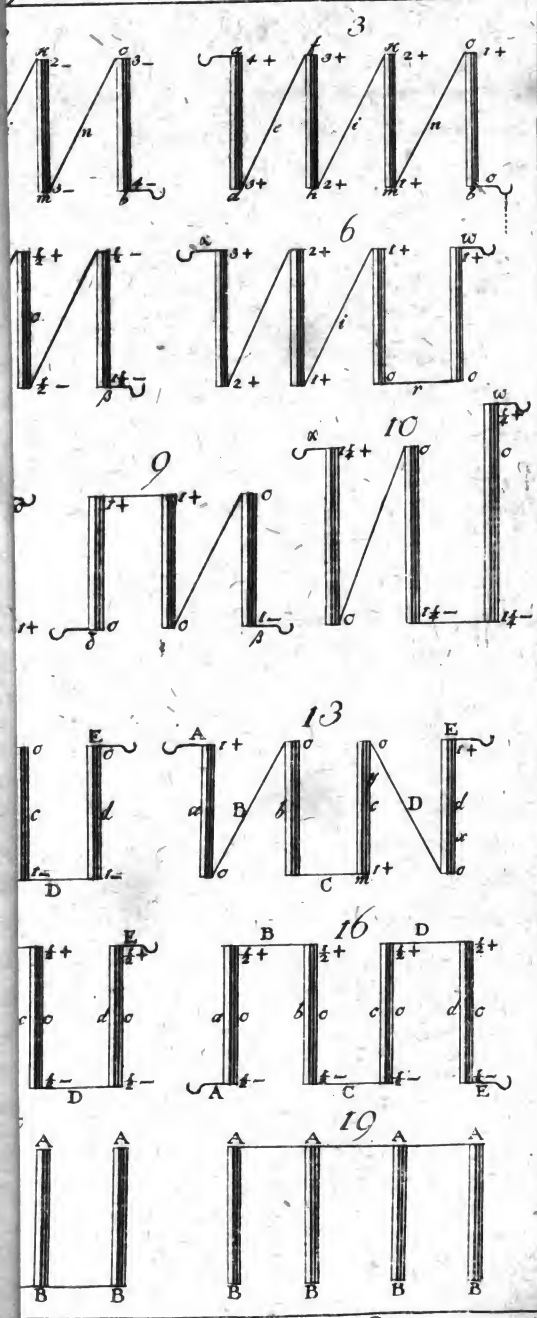 3
κ 2- o 3-
i n
m 3- b 4-
a 4+ f 3+ κ 2+ o 1+
c i n
d 3+ h 2+ m 1+ b o
6
½+ ½-
o
½- β 1½-
α 3+ 2+ 1+ w 1+
i
2+ 1+ o r o
9
1+ 1+ o
1+ δ o o 1- β
10
α 1½+ o w ½+
o
o 1½- 1½-
o E o
c d
1- D 1-
13
A 1+ o o E 1+
a B b y c D d
x
o C m 1+ o
½+ E ½+
c o d o
½- D ½-
16
B D
½+ ½+ ½+ ½+
a o b o c o d o
A ½- ½- C ½- ½- E
19
A A
B B
A A A A
B B B B